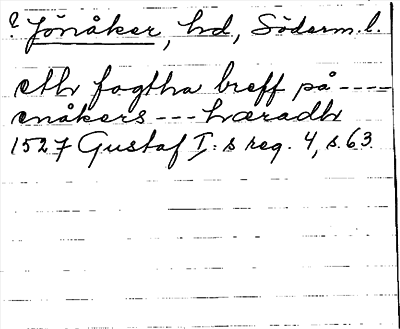 ? Jönåker, hd, Söderm.l.
Eth fogtha breff på ----
enåkers --- hæradh
1527 Gustaf I:s reg. 4, s. 63